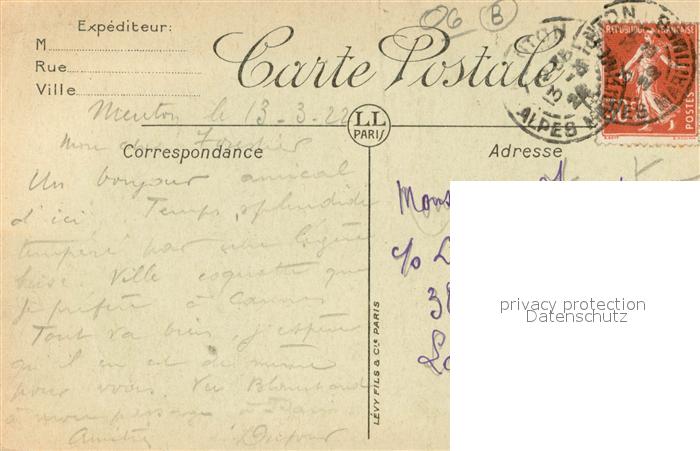 06 B
Expéditeur:
M
Rue
Ville
Carte Postale
MENTON
ALPES MARITIMES
REPUBLIQUE FRANÇAISE
POSTES
LL
PARIS
Correspondance
Adresse
Menton le 13-3-22
Mon cher
Un bonjour amical
d'ici. Temps splendide
tempéré par une légère
bise. Ville coquette que
je préfère à Cannes
Tout va bien, j'espère
qu'il en est de même
pour vous. Vu Blanchard
à mon passage à
Amitiés Dufour
c/o
LÉVY FILS & Cie PARIS
privacy protection
Datenschutz